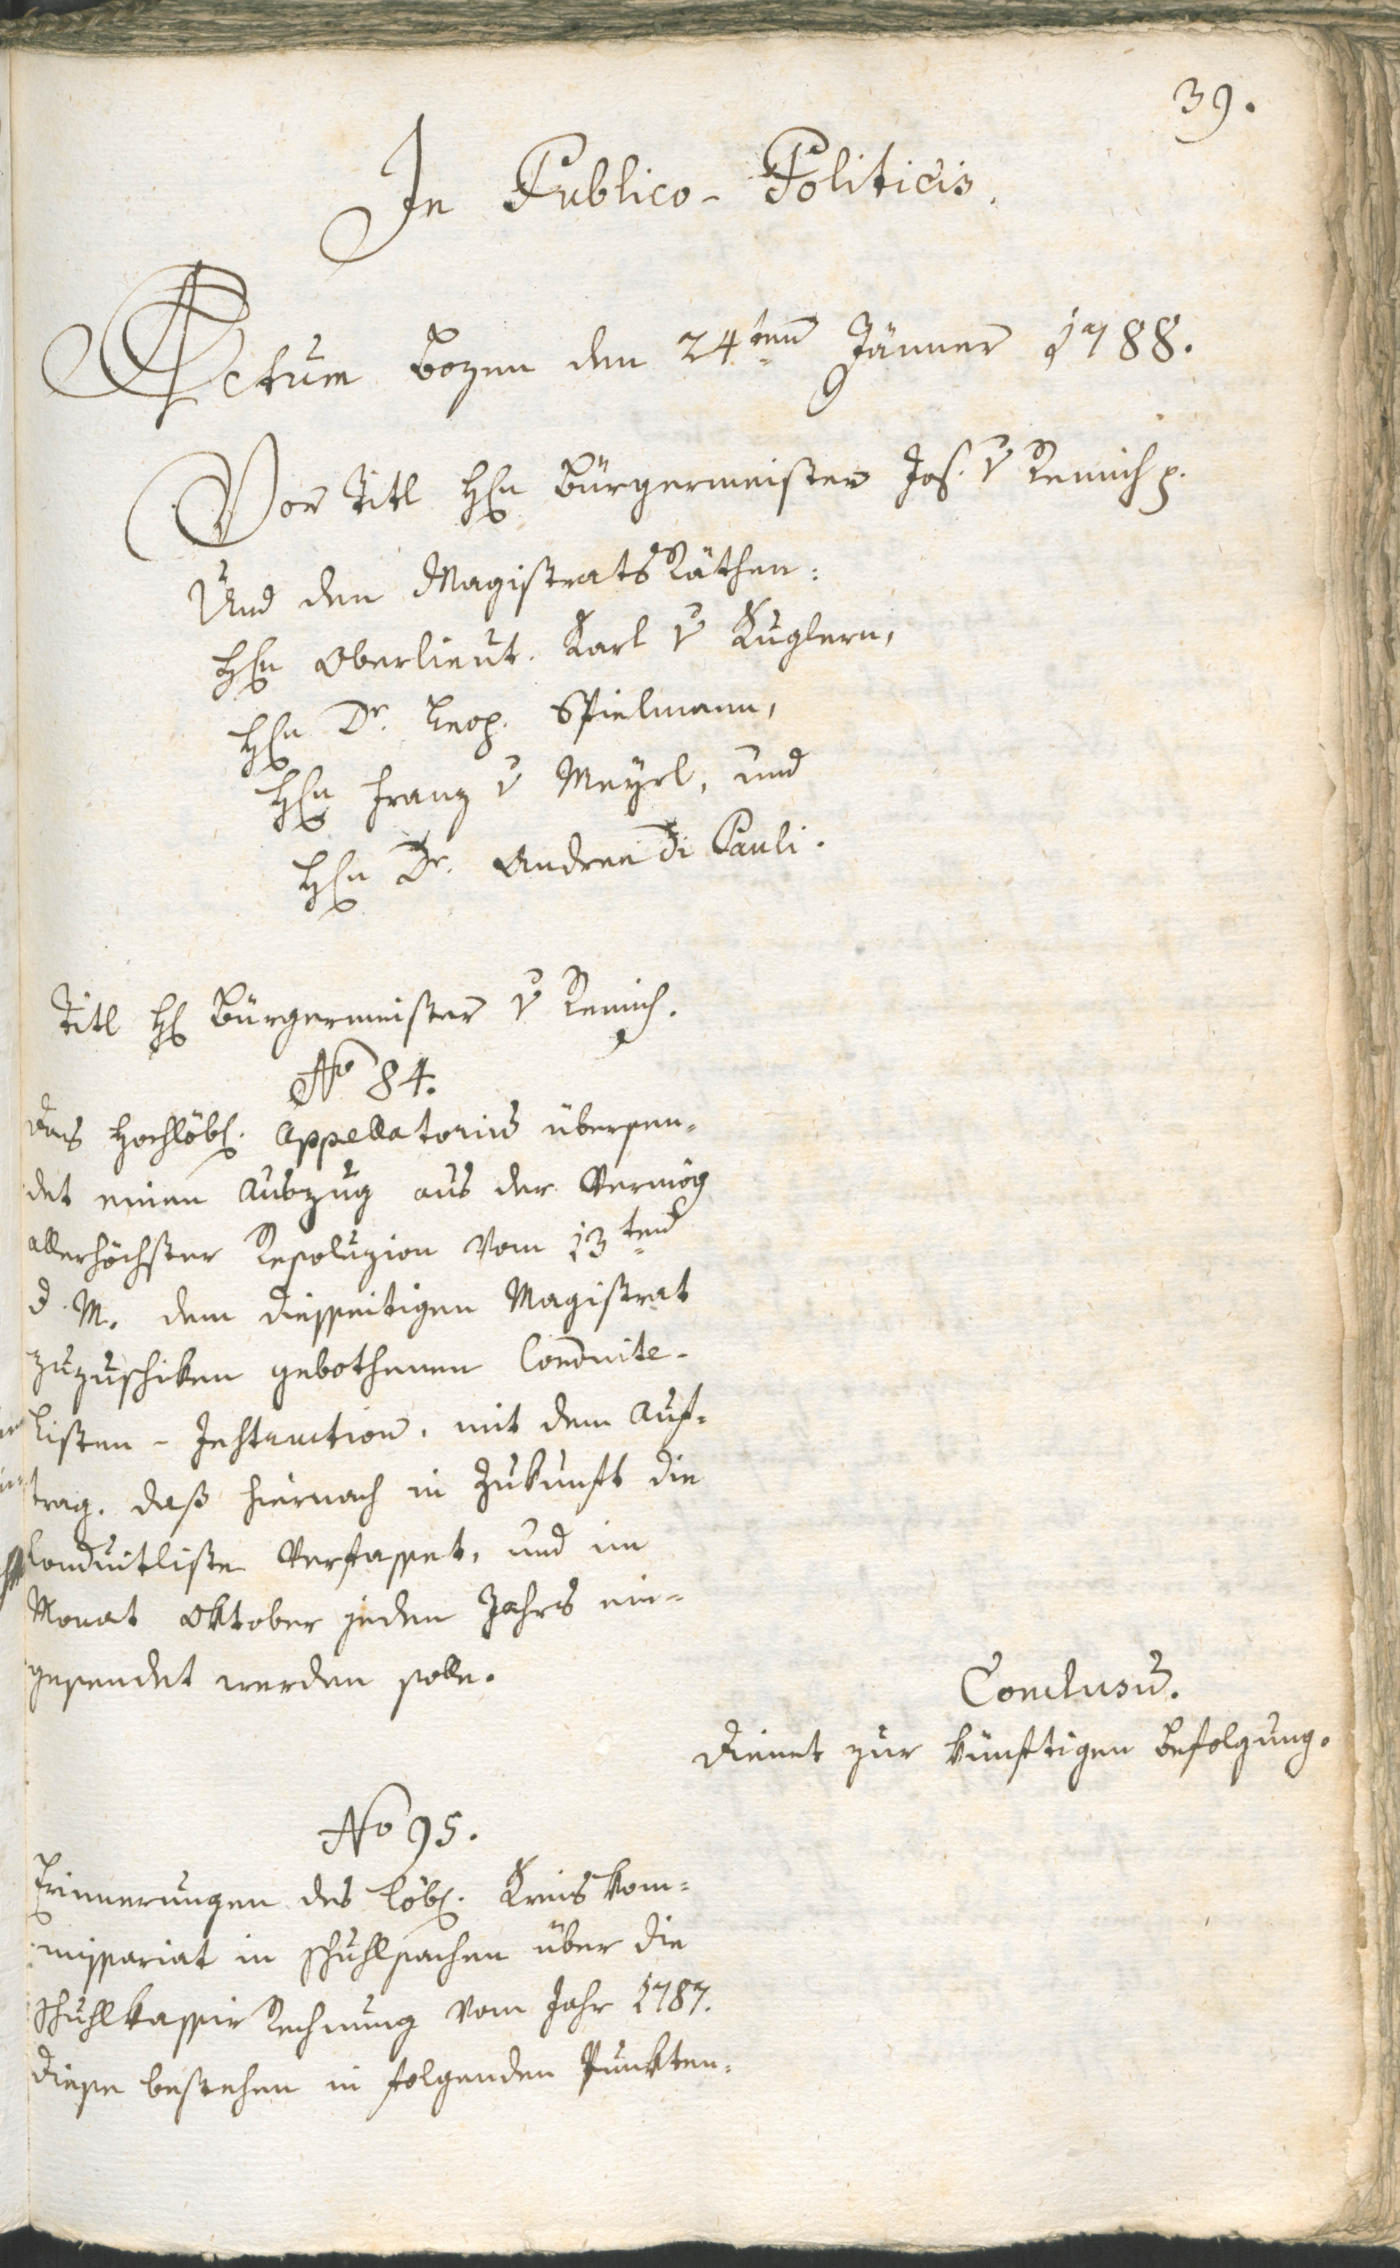 39.
In Publico-Politicis.
Actum Bozen den 24ten Jänner 1788.
Vor Titl Hℓn Bürgermeister Jos. v Remich p.
Und den Magistrats Räthen:
Hℓn Oberlieut. Karl v Kuglern,
Hℓn Dr. Leop. Spielmann,
Hℓn Franz v Meyrl, und
Hℓn Dr. Andree di Pauli.
Titl Hℓ Bürgermeister v Remich.
No 84.
Das Hochlöbℓ. Appellatoriū übersen-
det einen Auszug aus der Vermög
allerhöchster Resoluzion vom 13ten
d. M. dem diesseitigen Magistrat
zuzuschiken gebothenen Conduite-
listen-Instruction, mit dem Auf-
trag, daß hiernach in Zukunft die
Conduitliste verfasset, und im
Monat Oktober jeden Jahrs ein-
gesendet werden solle.
Conclusū.
Dienet zur künftigen Befolgung.
No 95.
Erinnerungen des löbℓ. Kreiskom-
missariat in Schuhlsachen über die
Schuhlkassir Rechnung vom Jahr 1787.
Diese bestehen in folgenden Punkten: